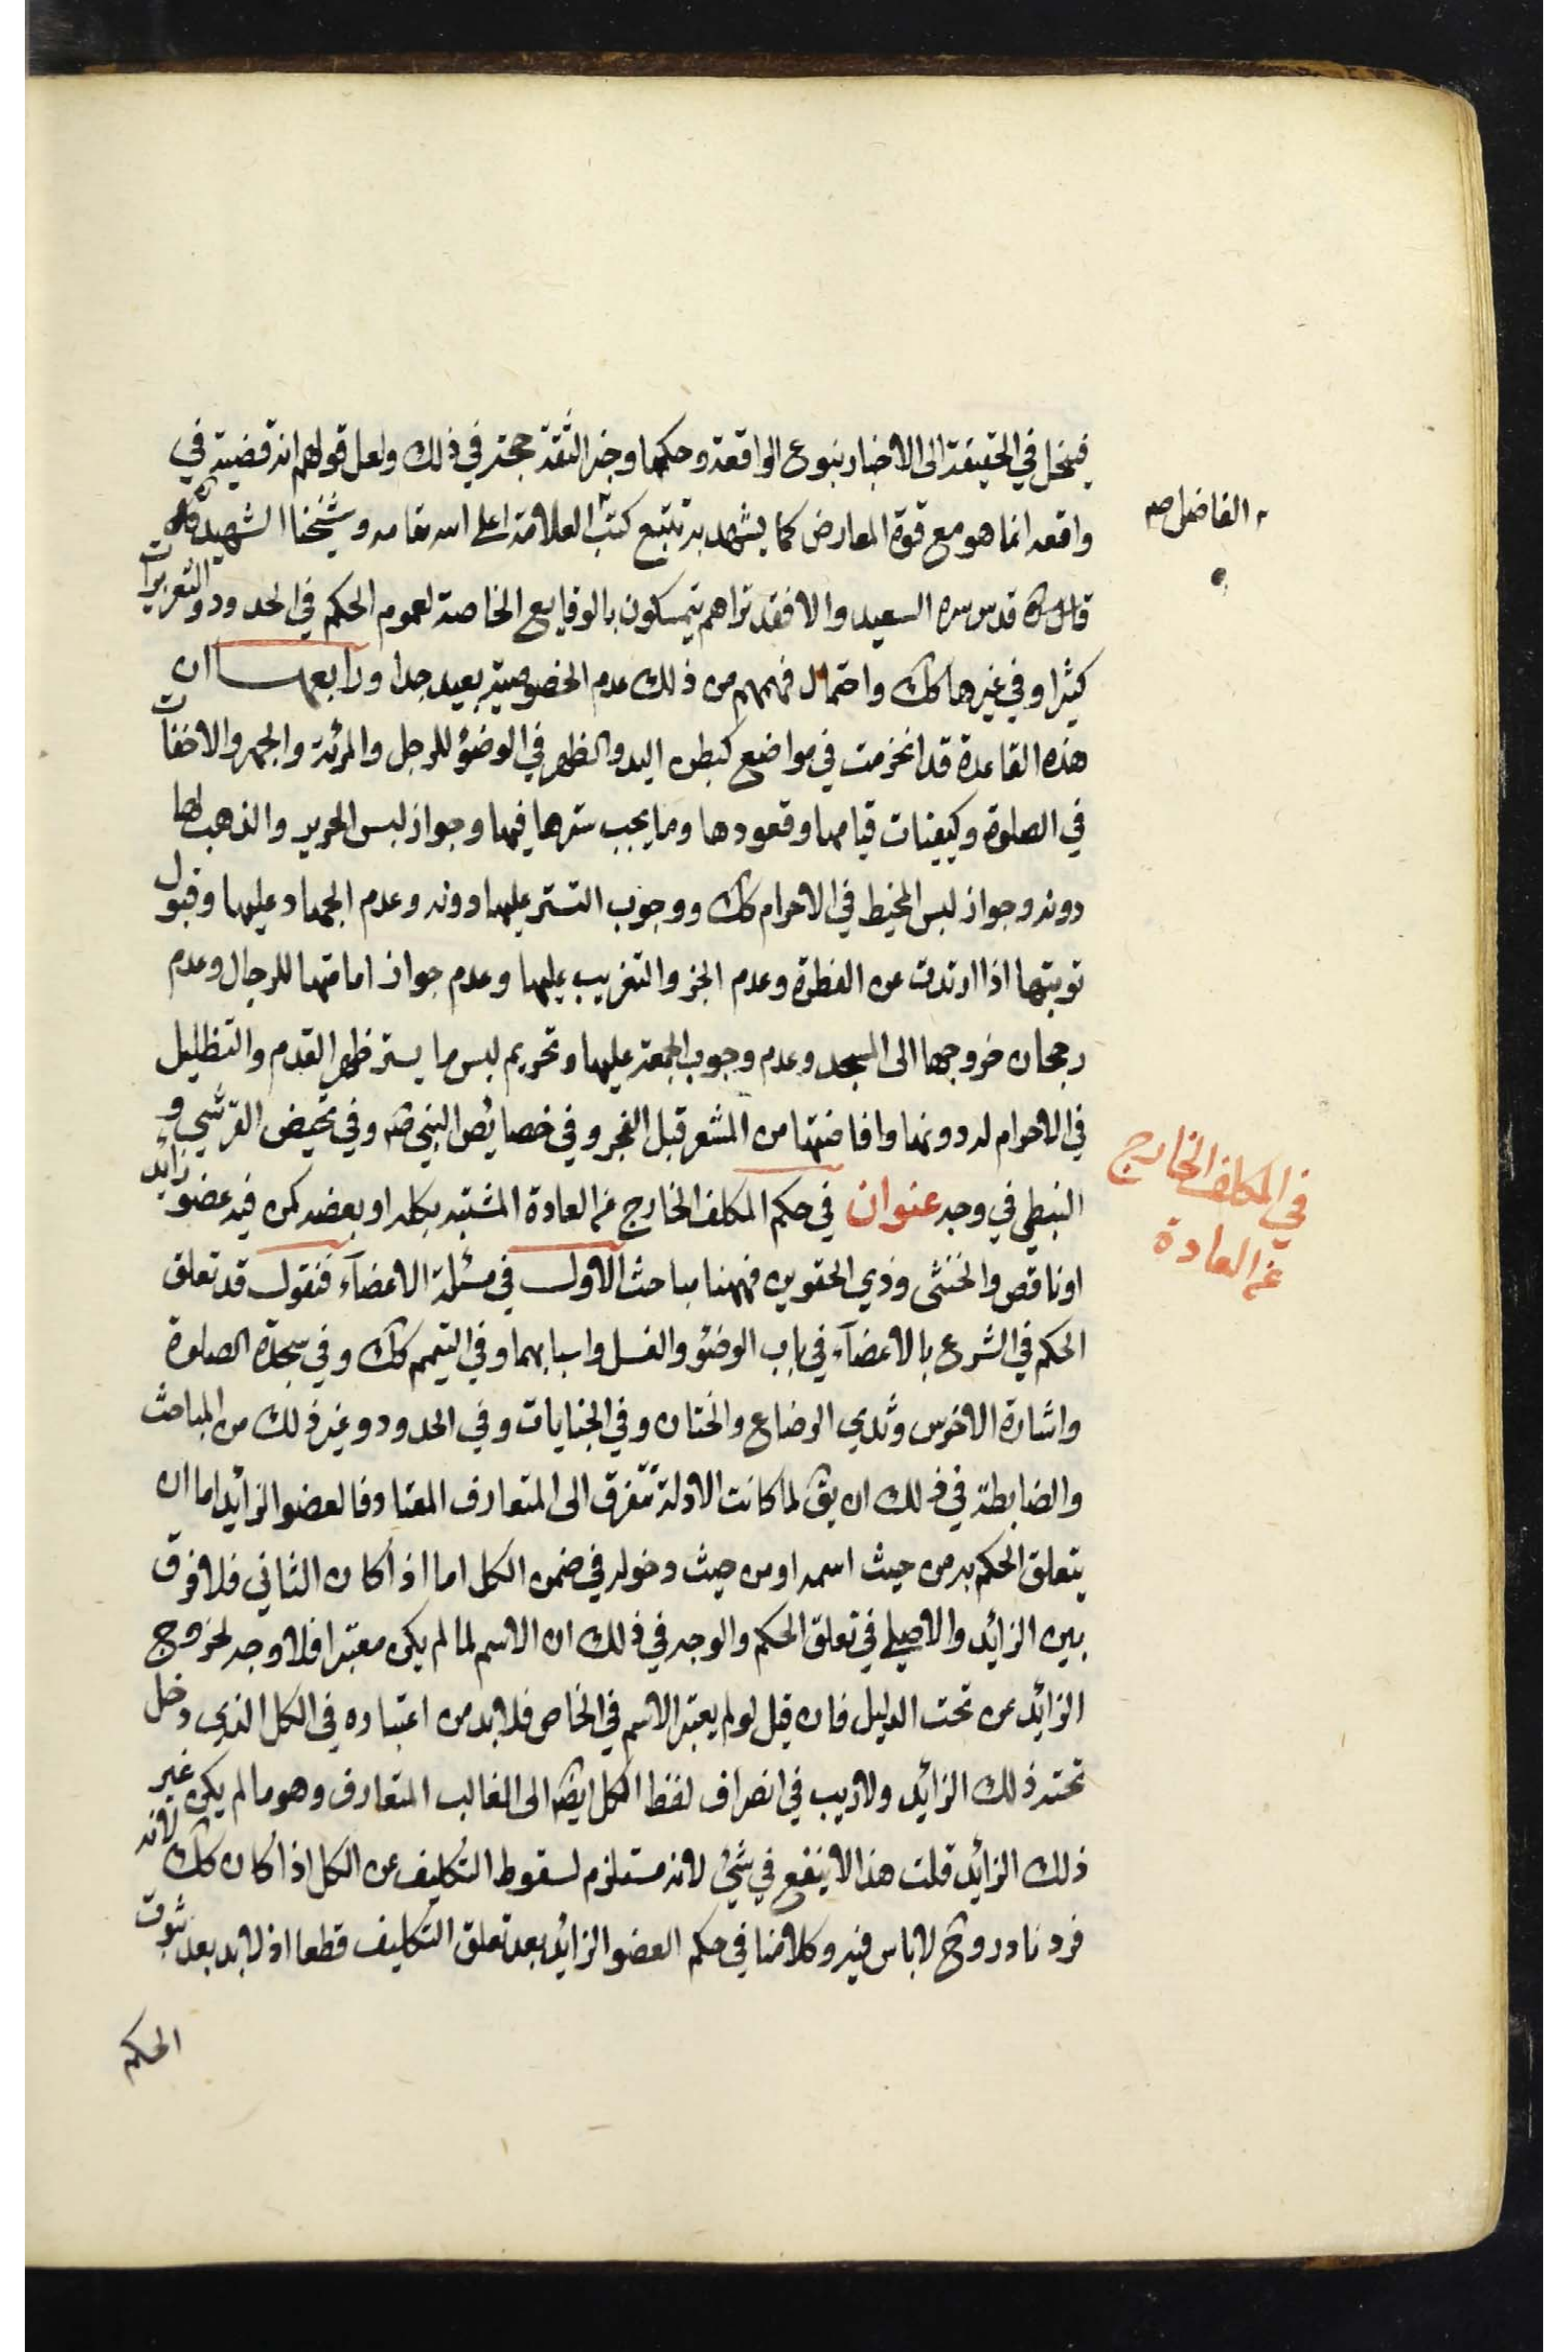 فينحل في الحقيقة الى الاخبار بنوع الواقعة وحكمها وخبر الثقة حجة في ذلك ولعل قولهم انه قضية في
واقعه انما هو مع قوة المعارض كما يشهد به تتبع كتب العلامة اعلى الله مقامه وشيخنا الشهيد
الفاضل صه
قدس سره السعيد والا فقد تراهم يتمسكون بالوقايع الخاصة لعموم الحكم في الحدود والتعزيرات
كثيرا وفي غيرها كك واحتمال فهمهم من ذلك عدم الخصوصية بعيد جدا ورابعها ان
هذه القاعدة قد انخرمت في مواضع كبطن اليد والظهر في الوضوء للرجل والمرئة والجهر والاخفات
في الصلوة وكيفيات قيامها وقعودها وما يجب سترها فيها وجواز لبس الحرير والذهب لها
دونه وجواز لبس المخيط في الاحرام كك ووجوب التستر عليها دونه وعدم الجهاد عليها وقبول
توبتها اذا ارتدت عن الفطرة وعدم الجز والتغريب عليها وعدم جواز امامتها للرجال وعدم
رجحان خروجها الى المسجد وعدم وجوب الجمعة عليها وتحريم لبس ما يستر ظهر القدم والتظليل
في الاحرام له دونها وافاضتها من المشعر قبل الفجر وفي خصايص النبي صه وفي تحيض القرشي و
النبطي في وجه عنوان في حكم المكلف الخارج عن العادة المشتبه بكله او بعضه كمن فيه عضو زائد
في المكلف الخارج
عن العادة
او ناقص والخنثى وذي الحقوين فههنا مباحث الاول في مسئلة الاعضاء فنقول قد تعلق
الحكم في الشرع بالاعضاء في باب الوضوء والغسل واسبابهما وفي التيمم كك وفي سجدة الصلوة
واشارة الاخرس وثدي الرضاع والختان وفي الجنايات وفي الحدود وغير ذلك من المباحث
والضابطة في ذلك ان يق لما كانت الادلة تنفرق الى المتعارف المعتاد فالعضو الزائد اما ان
يتعلق الحكم به من حيث اسمه او من حيث دخوله في ضمن الكل اما اذا كان الثاني فلا فرق
بين الزائد والاصلي في تعلق الحكم والوجه في ذلك ان الاسم لما لم يكن معتبرا فلا وجه لخروج
الزائد عن تحت الدليل فان قيل لو لم يعتبر الاسم في الخاص فلا بد من اعتباره في الكل الذي دخل
تحته ذلك الزائد ولا ريب في انصراف لفظ الكل ايضا الى الغالب المتعارف وهو ما لم يكن غير
ذلك الزائد قلت هذا لا ينفع في شئ لانه مستلزم لسقوط التكليف عن الكل اذا كان كك لانه
فرد نادر وح لا باس فيه وكلامنا في حكم العضو الزائد بعد تعلق التكليف قطعا اذ لا بد بعد ثبوت
الحكم